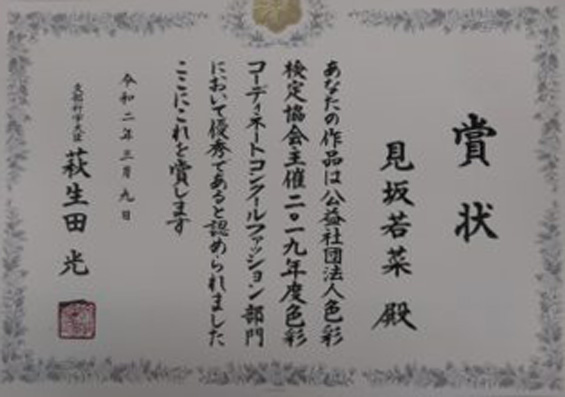 賞状
見坂若菜 殿
あなたの作品は公益社団法人色彩
検定協会主催二〇一九年度色彩
コーディネートコンクールファッション部門
において優秀であると認められました
ここにこれを賞します
令和二年三月九日
文部科学大臣 萩生田光一